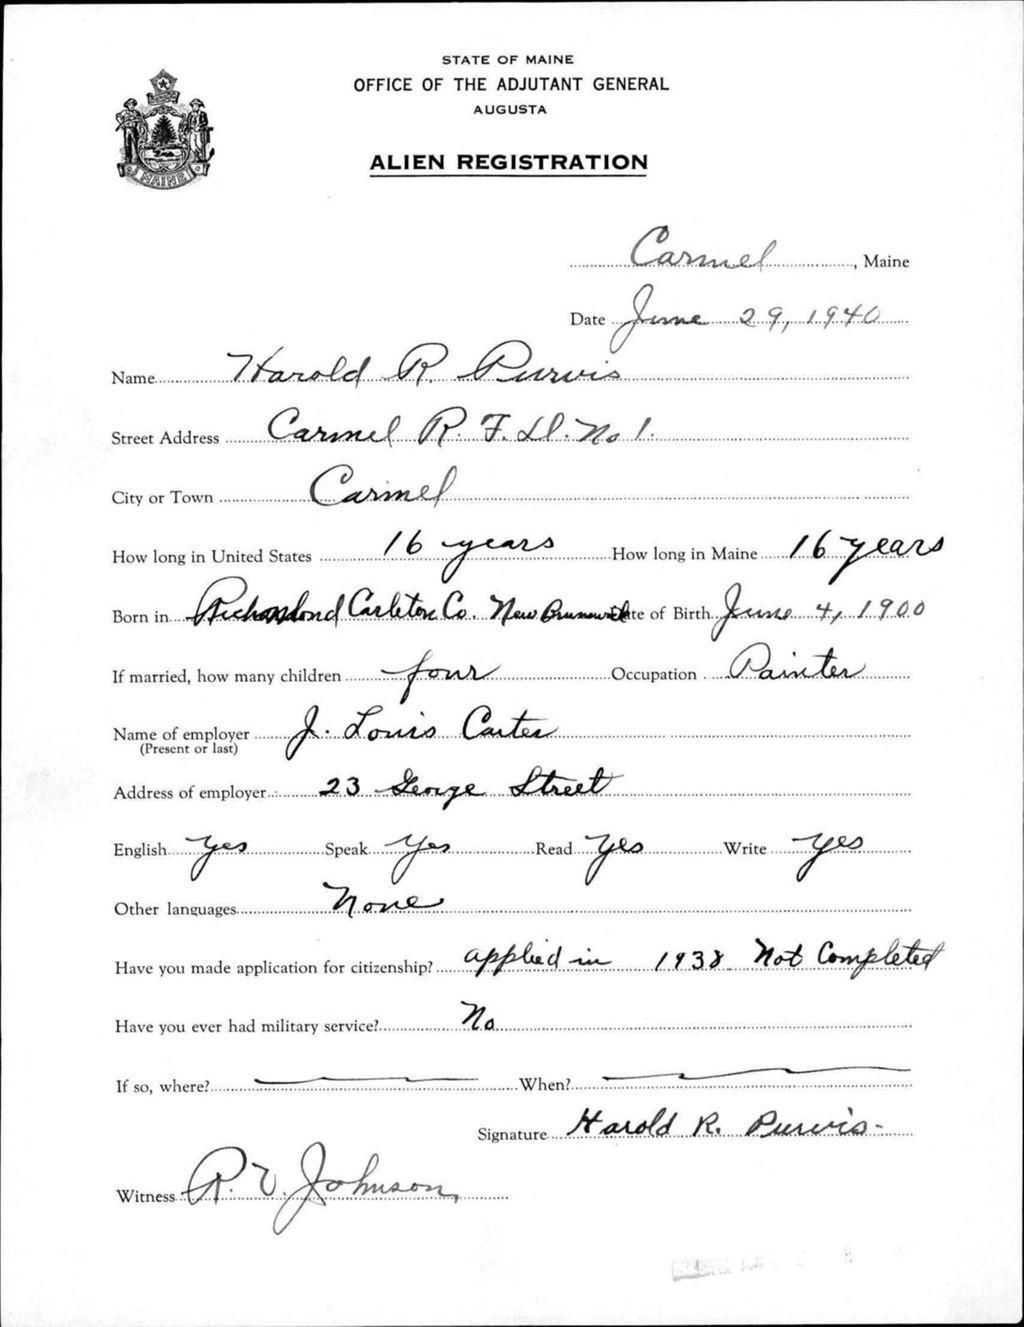 STATE OF MAINE
OFFICE OF THE ADJUTANT GENERAL
AUGUSTA
ALIEN REGISTRATION
MAINE
Carmel, Maine
Date June 29, 1940
Name Harold R. Purvis
Street Address Carmel R. F. D. No 1.
City or Town Carmel
How long in United States 16 years How long in Maine 16 years
Born in Richmond Carleton Co. New Brunswick Date of Birth June 4, 1900
If married, how many children four Occupation Painter
Name of employer J. Louis Carter
(Present or last)
Address of employer 23 George Street
English yes Speak Yes Read Yes Write Yes
Other languages None
Have you made application for citizenship? applied in 1938 Not Completed
Have you ever had military service? No
If so, where? When?
Signature Harold R. Purvis
Witness R. V. Johnson